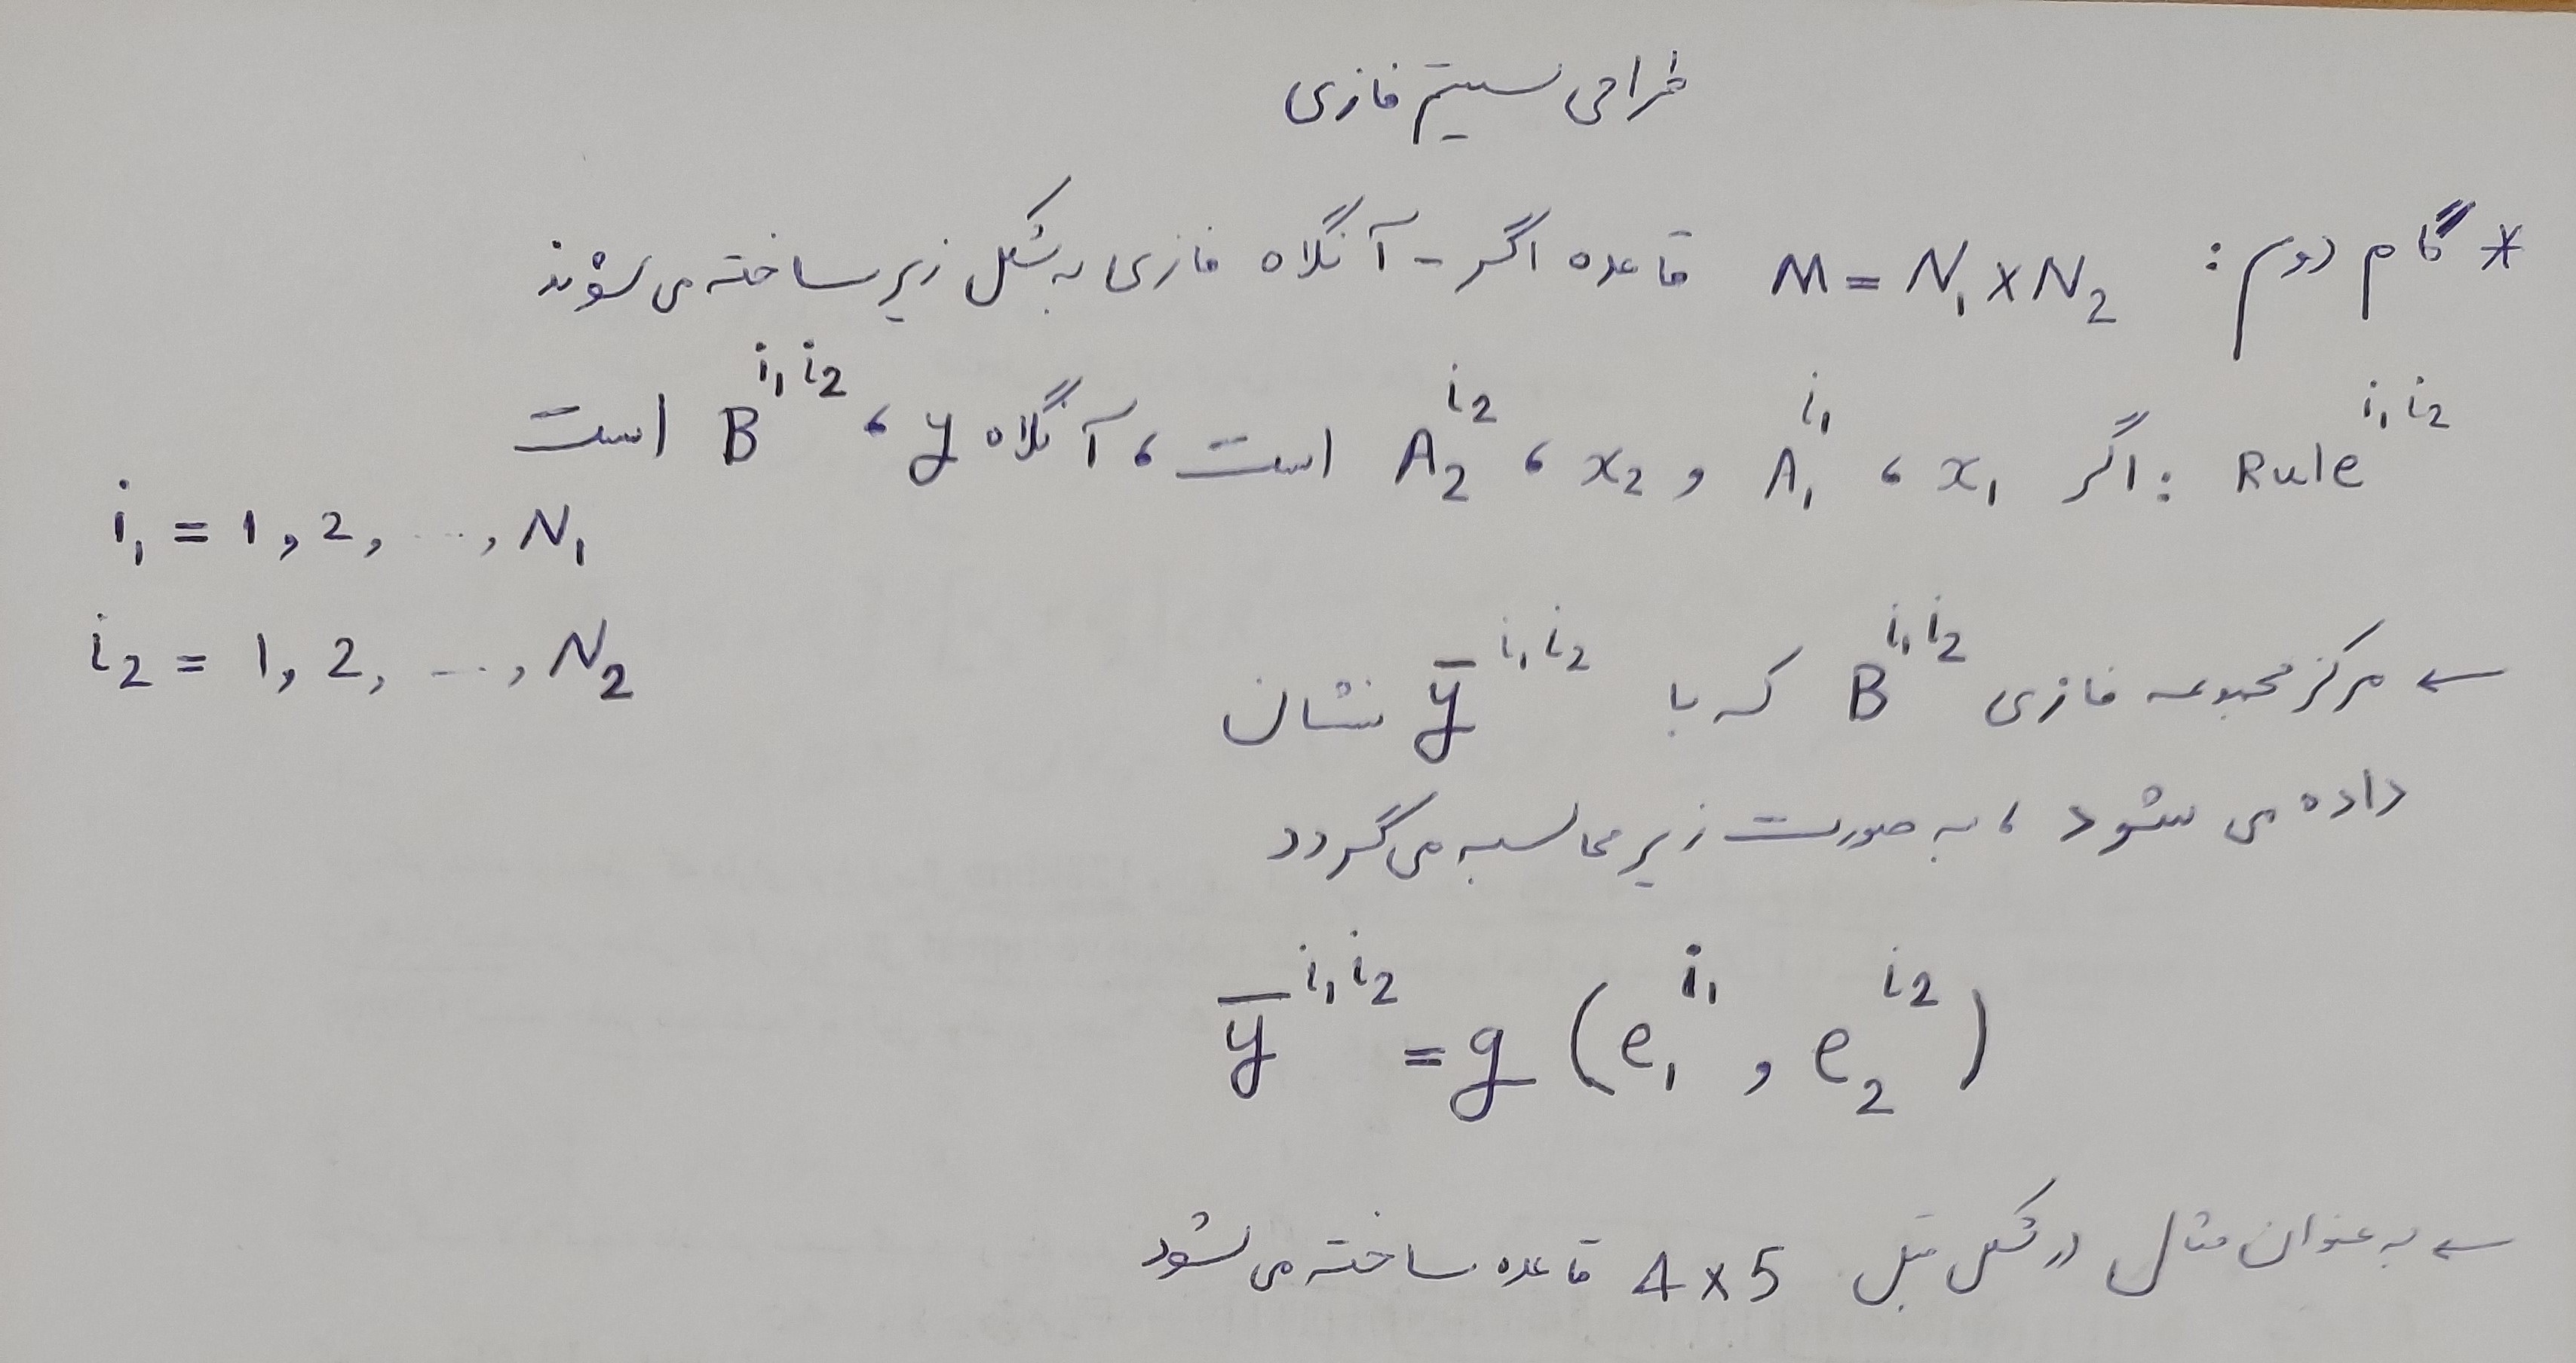 طراحی سیستم فازی
* گام دوم: M = N₁ × N₂ قاعده اگر - آنگاه فازی به شکل زیر ساخته می شوند
Rule^{i₁i₂} : اگر x₁ ، A₁^{i₁} و x₂ ، A₂^{i₂} است ، آنگاه y ، B^{i₁i₂} است
i₁ = 1, 2, ..., N₁
i₂ = 1, 2, ..., N₂
← مرکز مجموعه فازی B^{i₁i₂} که با ȳ^{i₁i₂} نشان
داده می شود ، به صورت زیر محاسبه می گردد
ȳ^{i₁i₂} = g (e₁^{i₁} , e₂^{i₂})
← به عنوان مثال در شکل قبل 4 × 5 قاعده ساخته می شود